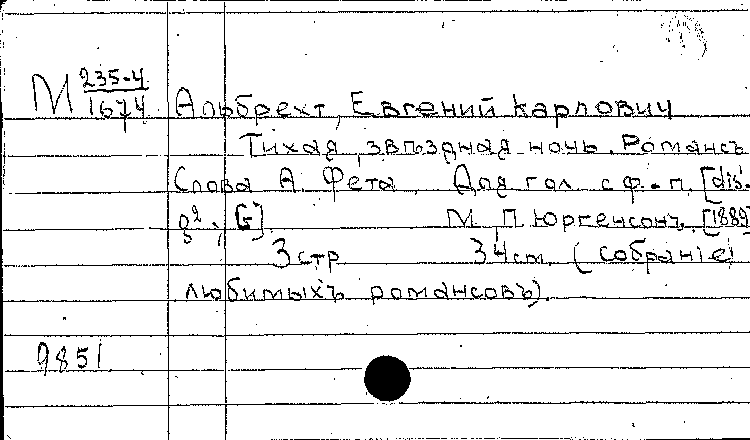 М 235-4
1674 Альбрехт, Евгений Карлович
Тихая, звѣздная ночь. Романсъ
Слова А. Фета. Для гол. с ф.-п. [dis.
g²; G]. М., П. Юргенсонъ, [1889]
3 стр 34 cm. (собраніе
любимыхъ романсовъ).
9851